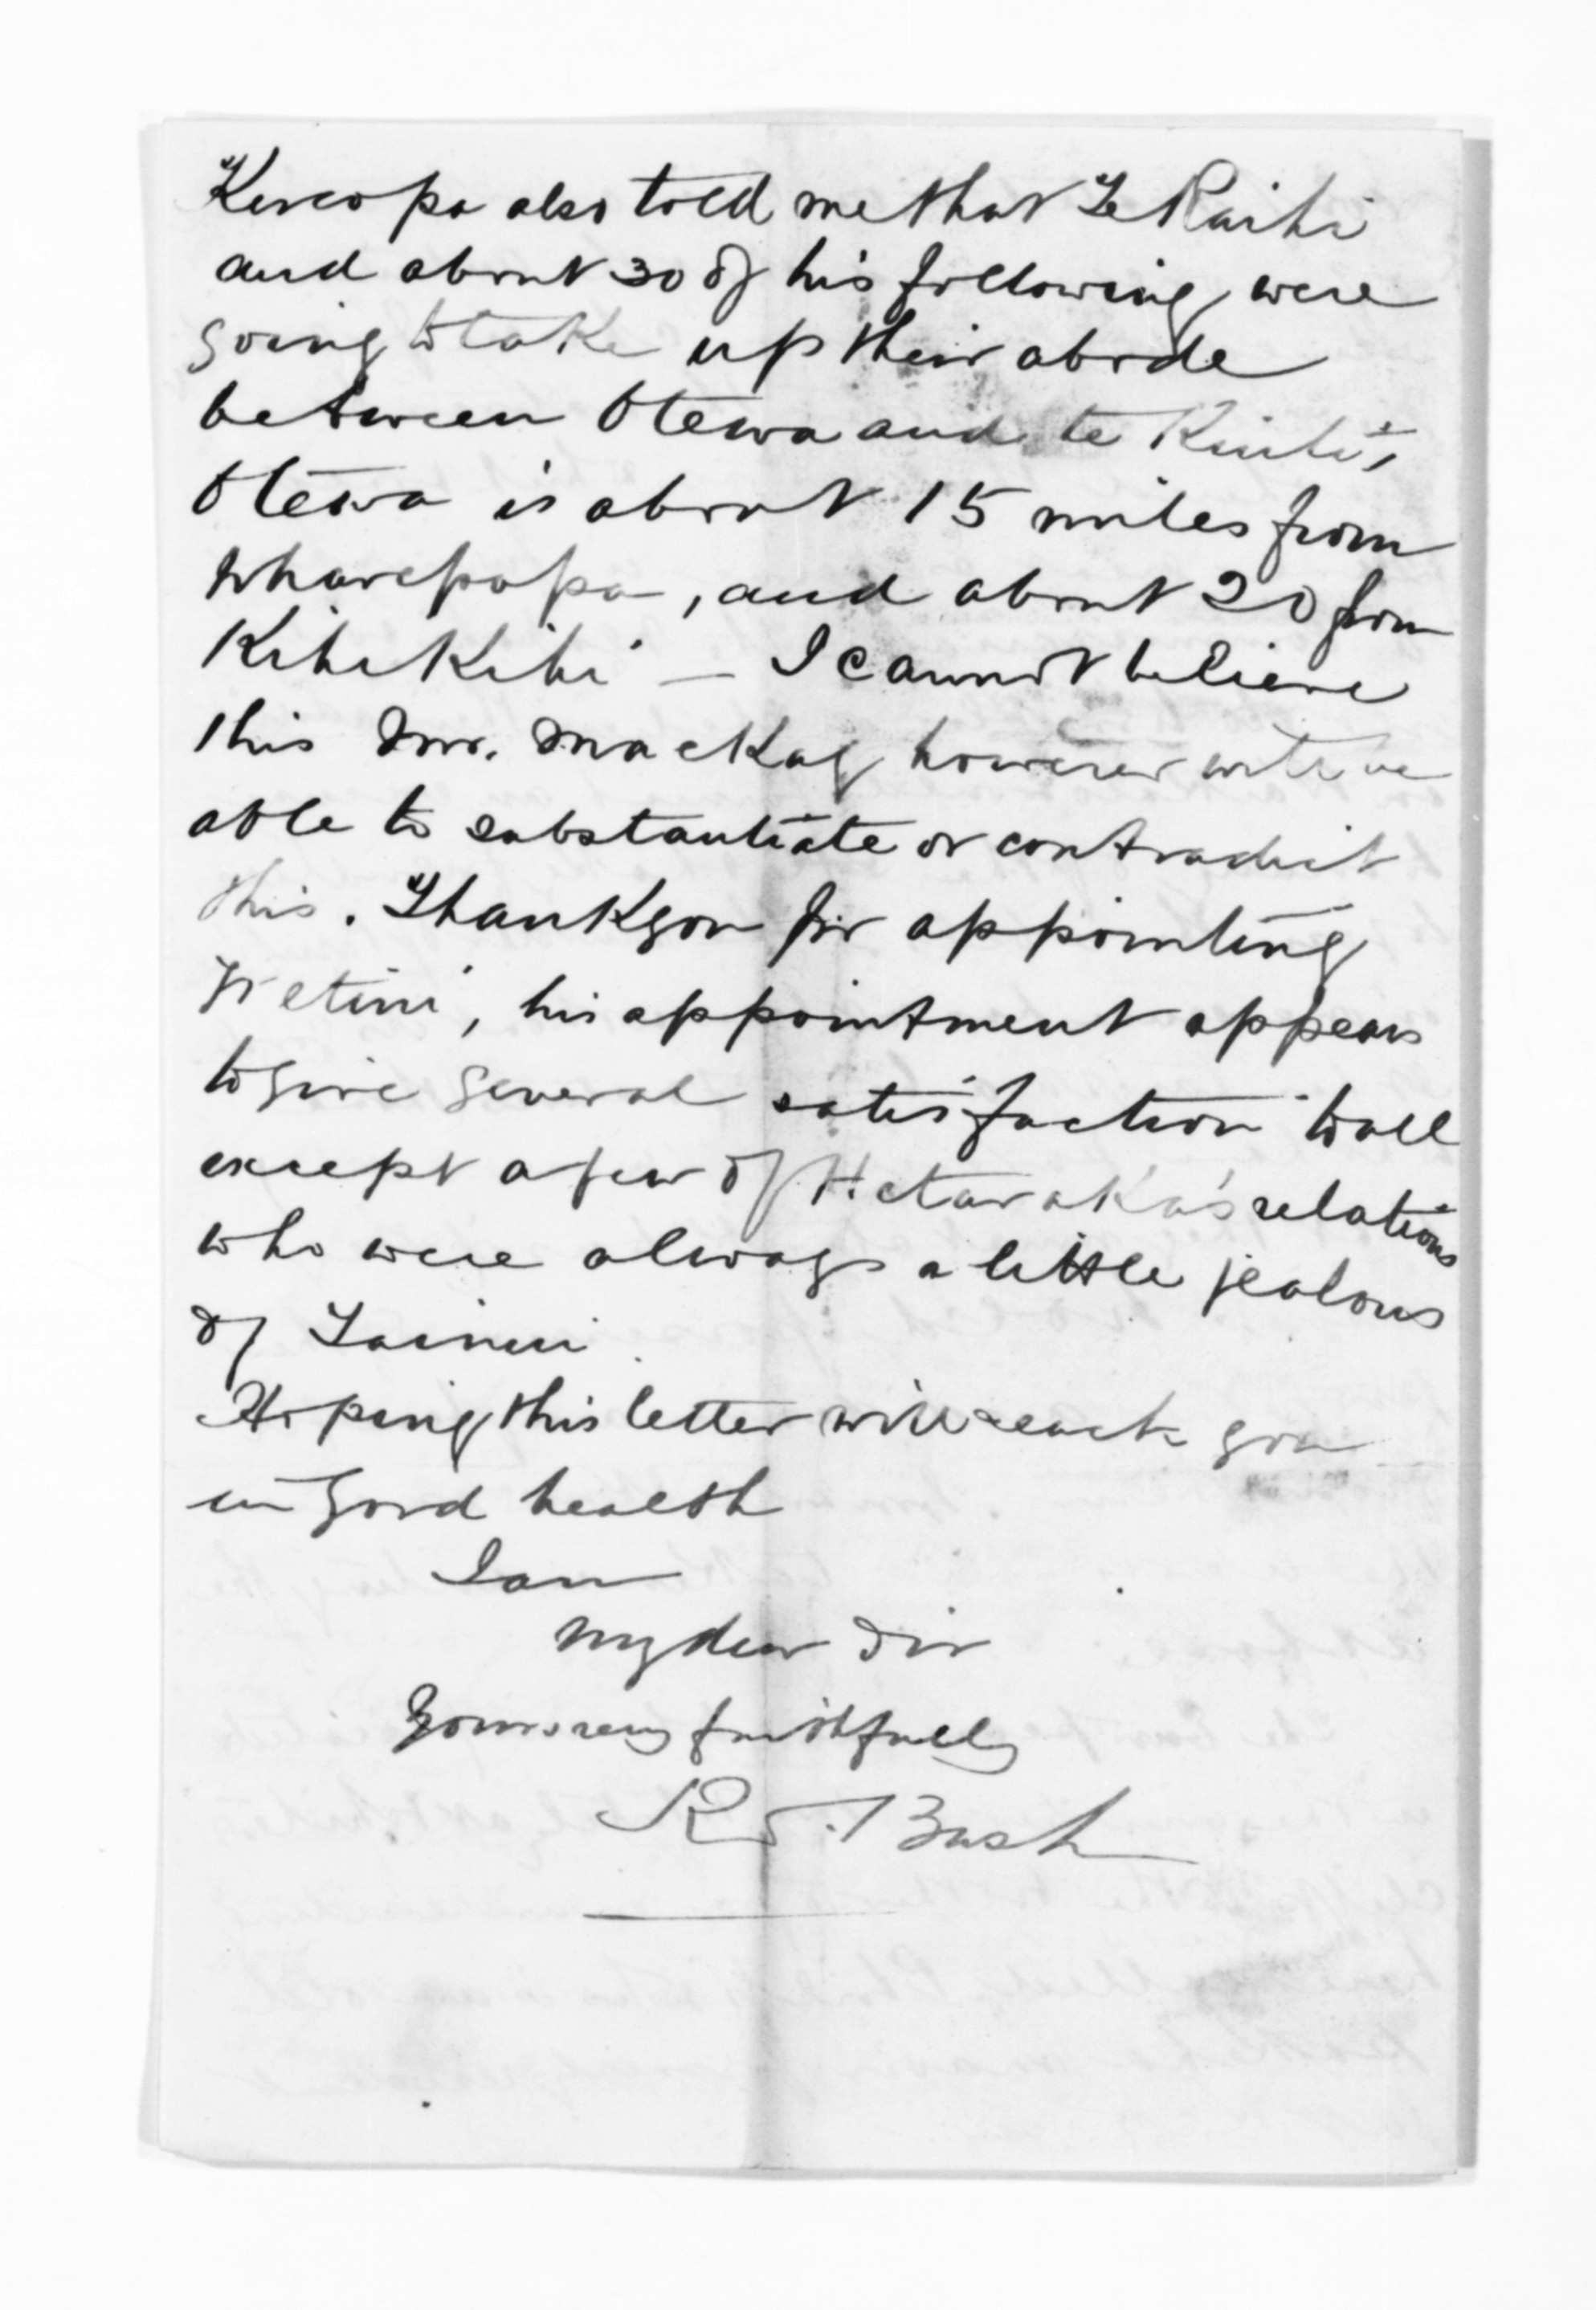 Kereopa also told me that Te Raihi
and about 30 of his following, were
going to take up their abode
between Otewa and te Kuiti,
Otewa is about 15 miles from
Wharepapa, and about 20 from
KihiKihi — I cannot believe
this Mr. MacKay however will be
able to substantiate or contradict
this. Thank you for appointing
Wetini, his appointment appears
to give general satisfaction to all
except a few of Hetaraka's relations
who were always a little jealous
of Tainui
Hoping this letter will reach you
in good health
I am
my dear Sir
Yours very faithfully
R S. Bush